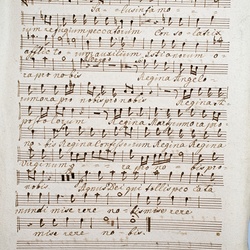 Sa- lus infirmo-
rum refugium peccatorum Consolatrix
afflictorum auxilium Christianorum o
ra pro nobis Regina Angelo
rum ora pro nobis pro nobis Regina A
postolorum Regina Martirum ora pro
nobis Regina Confessorum Regina Regina
Virginum ora pro nobis pro
nobis. Agnus Dei qui tollis pec ca ta
mundi miserere nobis miserere
miserere nobis.